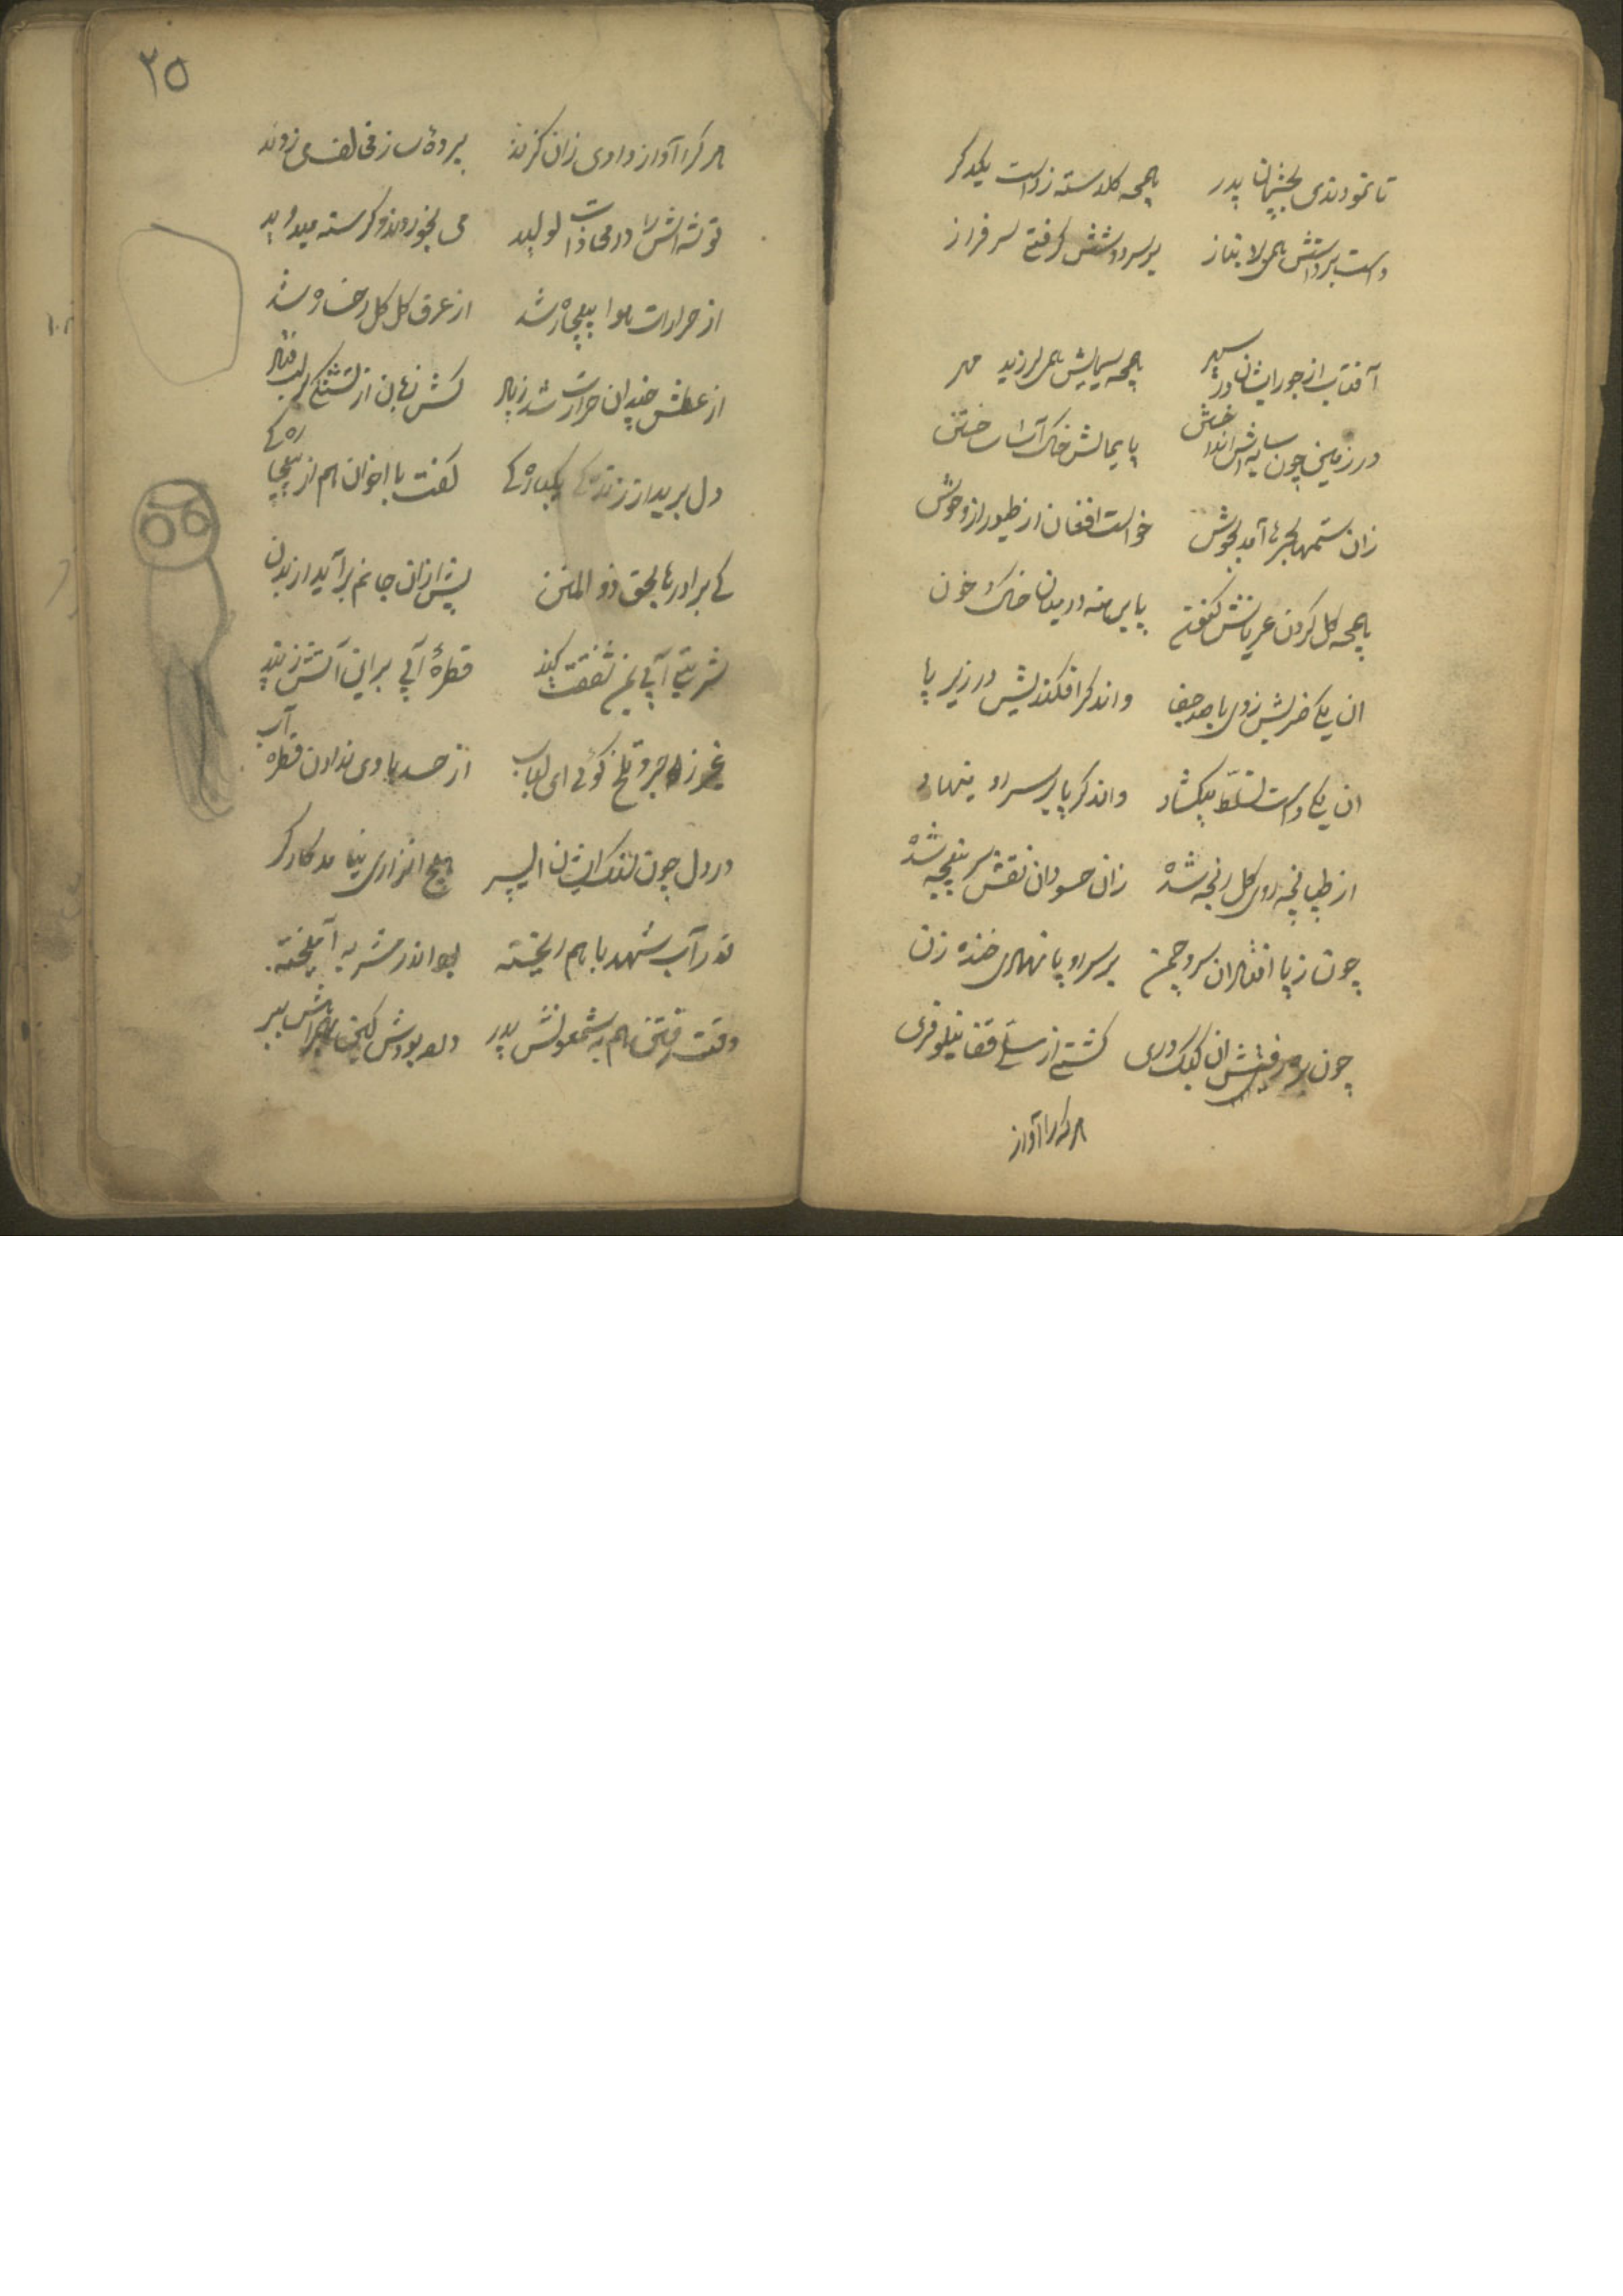 تا نمودندی بچشمان پدر همچه کلدسته ز دست یکدکر
دست بر دستش همی لا بناز بر سر دوشش کرفتی سرفراز
آفتاب از جور ایشان در سپهر همچه سیمایش همی لرزید مهر
در زمین چون سایه اش انداختش پایمالش خاک آسا ساختش
زان ستمها بحرها آمد بجوش خواست افغان از طیور از وحوش
همچه کل کردن عریانش کنون پا برهنه در میدان خاک و خون
ان یکی ضربش زدی با صد جفا واندکر افکندیش در زیر پا
ان یکی دست تسلط میکشاد واندکر پا بر سر او مینهاد
از طپانچه روی کل رنجه شده زان حسودان نقش سرپنجه شده
چون ز پا افتاد ان سرو چمن بر سر او پا نهادی خنده زن
چون رفتنش ان کبک دری کشتی از سیلی قفا نیلوفری
هر کرا آواز
۲۵
هر کرا آواز دادی زان کزند پردهٔ ساز مخالف می زدند
توشه اش را در محاذات لولید می بخوردند و کرسنه میدوید
از حرارت هوا بیچاره شد از عرق کل کل رخساره شد
از عطش چندان حرارت شد زیاد کش زبان از تشنکی بر لب فتاد
دل برید از زندکی یکباره کی کفت با اخوان هم از بیچاره کی
کی برادرها بحق ذو المنن پیش ازان جانم برآید از بدن
شربتی آبی بمن شفقت کنید قطرهٔ آبی برای آتش زنید
غیر زجر و تلخ کوئی ای لباب از حسد با وی ندادن قطره آب
در دل چون سنک ایشان ای پسر هیچ انزاری نیامد کارکر
در آب شهد با هم ریخته بود اندر مشربه آمیخته
وقت رفتن هم به شمعونش پدر داده بودش کین بهمراهش ببر